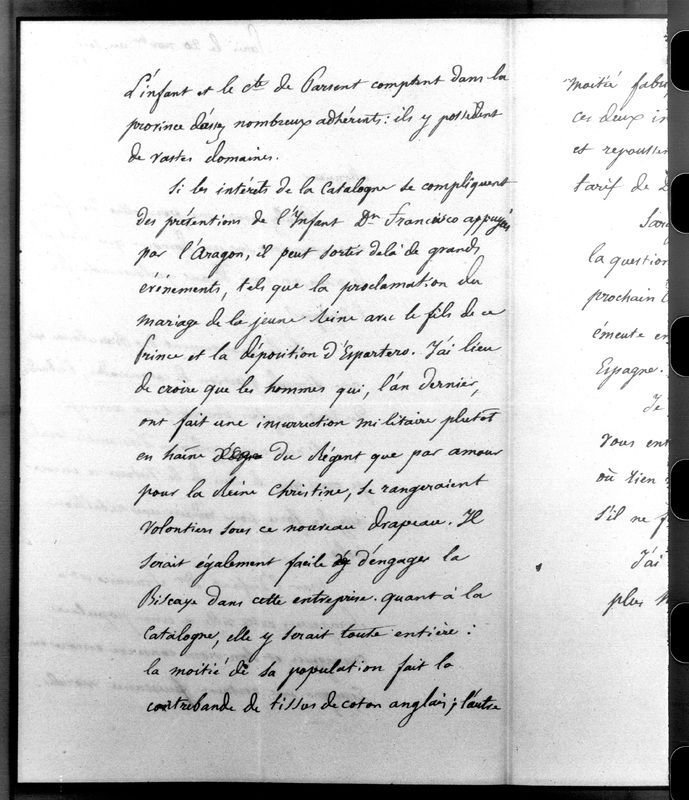 L'infant et le cte de Parsent comptent dans la
province d'assez nombreux adhérents: ils y possèdent
de vastes domaines.
Si les intérêts de la Catalogne se compliquent
des prétentions de l'Infant Dn Francisco appuyés
par l'Aragon, il peut sortir delà de grands
événements, tels que la proclamation du
mariage de la jeune Reine avec le fils de ce
prince et la déposition d'Espartero. J'ai lieu
de croire que les hommes qui, l'an dernier,
ont fait une insurrection militaire plutôt
en haine du Régent que par amour
pour la Reine Christine, se rangeraient
volontiers sous ce nouveau drapeau. Il
serait également facile d'engager la
Biscaye dans cette entreprise. quant à la
Catalogne, elle y serait toute entière:
la moitié de sa population fait la
contrebande de tissus de coton anglais; l'autre
moitié fabri
ces deux in
et repousser
tarif de D
la question
prochain
émeute en
Espagne.
Je
vous ent
où rien
s'il ne f
J'ai
plus